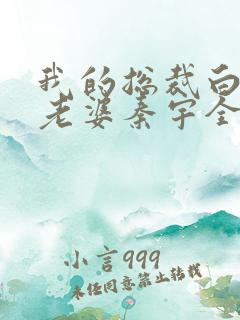 我的总裁白
老婆秦宇全
小言999
未经同意禁止转载